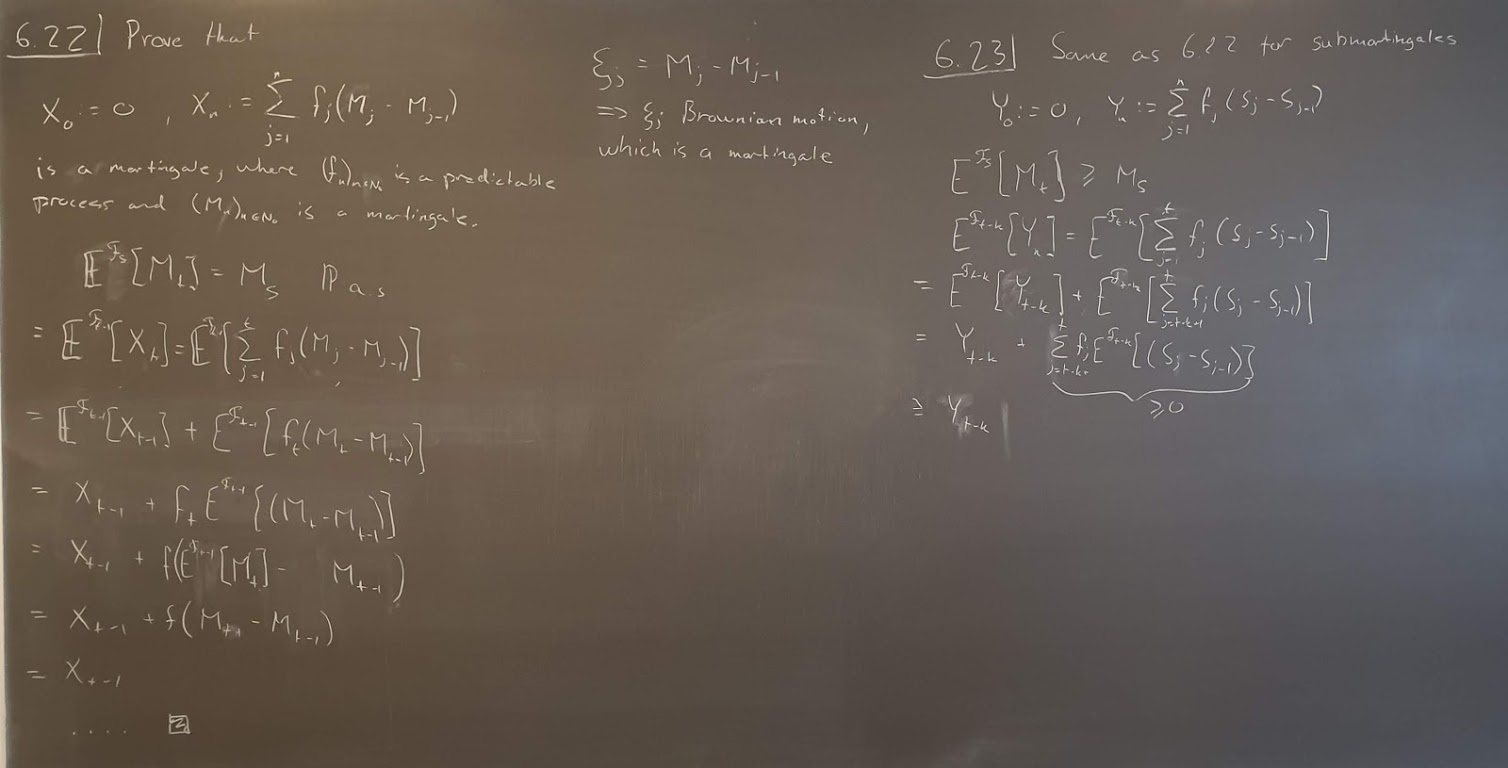 6.22 Prove that
X₀ := 0 , Xₙ := ∑_{j=1}^{n} f_j (M_j - M_{j-1})
is a martingale, where (f_n)_{n∈ℕ₀} is a predictable
process and (M_n)_{n∈ℕ₀} is a martingale.
𝔼^{ℱ_s}[M_t] = M_s ℙ a.s
= 𝔼^{ℱ_{t-1}}[X_t] = 𝔼^{ℱ_{t-1}}[∑_{j=1}^{t} f_j (M_j - M_{j-1})]
= 𝔼^{ℱ_{t-1}}[X_{t-1}] + E^{ℱ_{t-1}}[f_t (M_t - M_{t-1})]
= X_{t-1} + f_t E^{ℱ_{t-1}}[(M_t - M_{t-1})]
= X_{t-1} + f(E^{ℱ_{t-1}}[M_t] - M_{t-1})
= X_{t-1} + f(M_{t-1} - M_{t-1})
= X_{t-1}
....
ξ_j = M_j - M_{j-1}
=> ξ_j Brownian motion,
which is a martingale
6.23 Same as 6.22 for submartingales
Y₀ := 0, Yₙ := ∑_{j=1}^{n} f_j (S_j - S_{j-1})
E^{ℱ_s}[M_t] ≥ M_s
E^{ℱ_{t-k}}[Y_n] = E^{ℱ_{t-k}}[∑_{j=1}^{t} f_j (S_j - S_{j-1})]
= E^{ℱ_{t-k}}[Y_{t-k}] + E^{ℱ_{t-k}}[∑_{j=t-k+1}^{t} f_j (S_j - S_{j-1})]
= Y_{t-k} + ∑_{j=t-k+}^{t} f_j E^{ℱ_{t-k}}[(S_j - S_{j-1})]
≥0
≥ Y_{t-k}